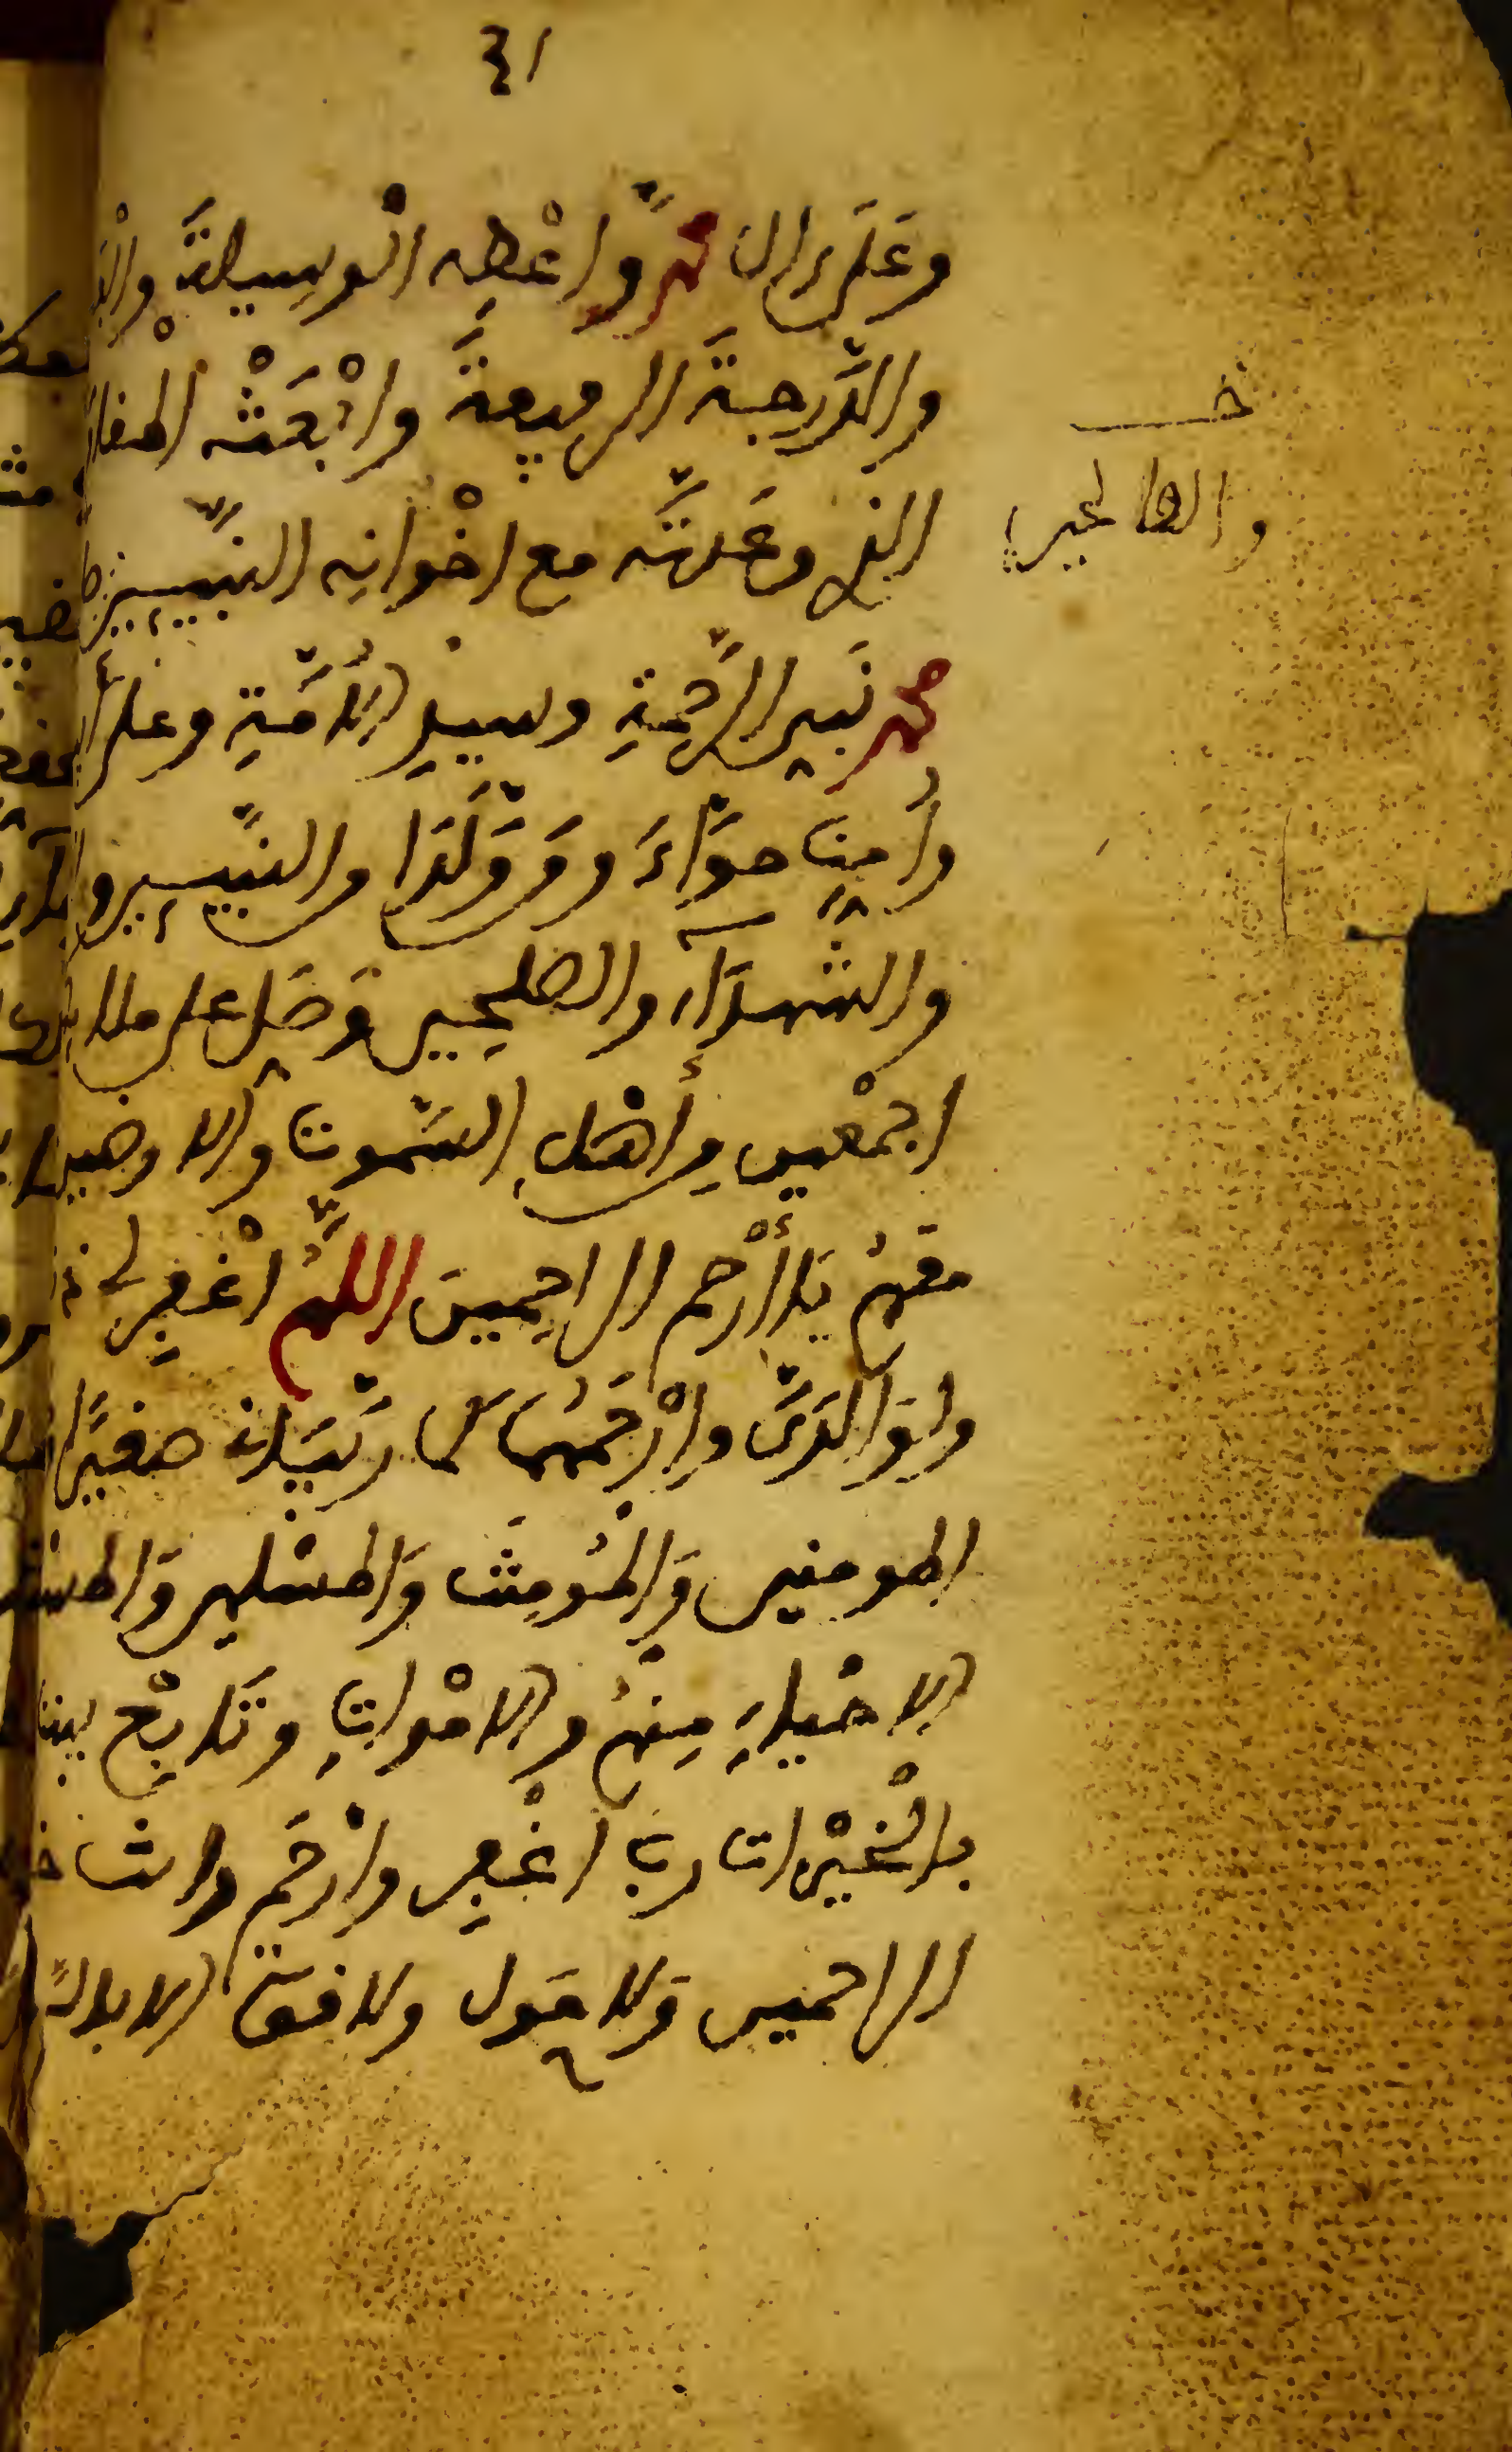 ٤١
وَعَلَى ءالِ مُحَمَّدٍ وَاعْطِهِ الْوَسِيلَةَ
وَالدَّرَجَةَ الرَّفِيعَةَ وَابْعَثْهُ الْمَقَامَ
الذي وَعَدتَّهُ مع اخْوَانِهِ النَّبِيِّينَ
خـ
والصالحين
محمد نَبِيِّ الرَّحْمَةِ وسيدِ الأُمَّةِ وعلى أ
وَأُمِّنَا حَوَّاءَ وَمَن وَلَدَا من النَّبِيِّينَ و
وَالشُّهَدَآءِ والصلحين وَصَلِّ على ملا
اجمعين مِن أَهْلِ السَّموت والارضين
معهُم يا أَرْحم الراحِمِينَ اللَّهُمَّ اغْفِر لي
ولِوَالِدَيَّ وارْحَمْهُمَا كما رَبَّيَانِي صغيرًا
المومنين وَالْمُومِنَت وَالمسْلمين وَالمسـ
الاحْيَاءِ مِنْهُم والامْوَاتِ وَتَابِعْ بيننا
بِالْخَيْرَات ربِّ اغْفِر وارْحَم وانت خـ
الراحمين وَلا حَول ولا قوة الا بالله